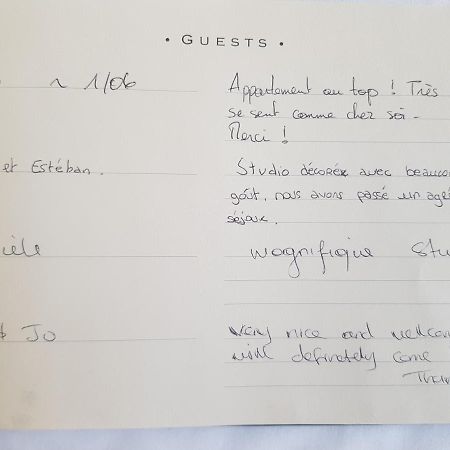 • GUESTS •
~ 1/06
Appartement au top ! Très
se sent comme chez soi -
Merci !
et Estéban.
Studio décorée avec beaucou
goût, nous avons passé un agré
séjour.
magnifique Stu
& Jo
very nice and welcom
will definately come